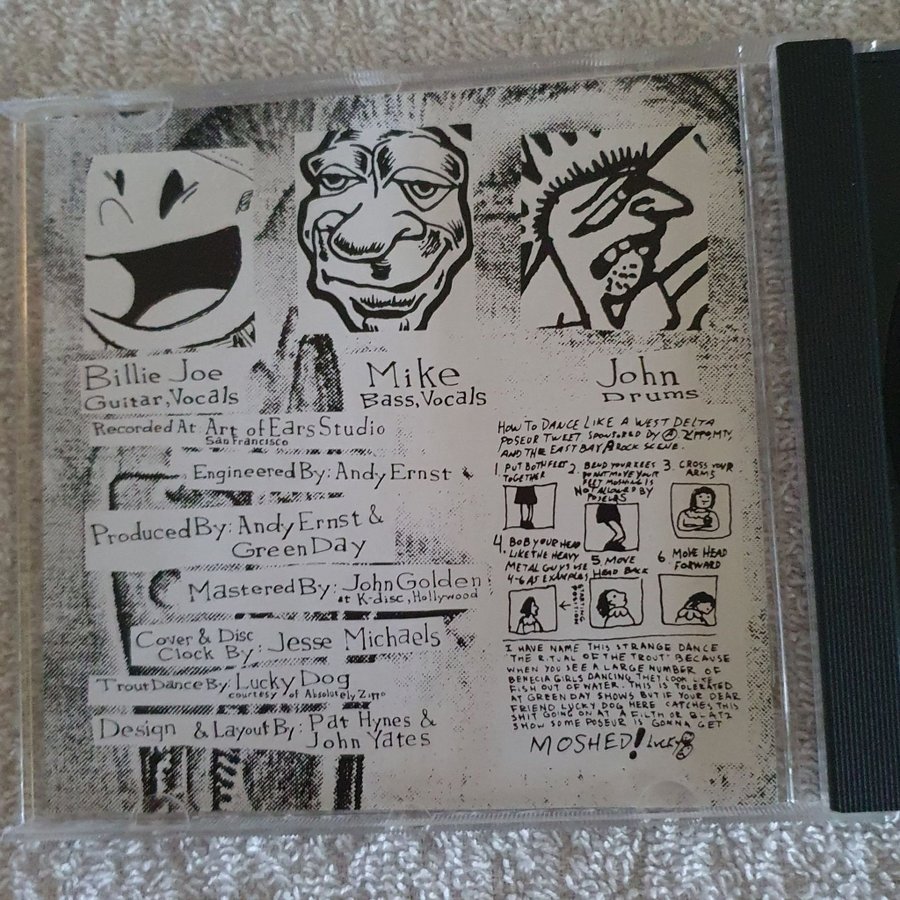 Billie Joe
Guitar, Vocals
Mike
Bass, Vocals
John
Drums
Recorded At Art of Ears Studio
San Francisco
Engineered By: Andy Ernst
Produced By: Andy Ernst &
Green Day
Mastered By: John Golden
at K-disc, Hollywood
Cover & Disc
Clock By: Jesse Michaels
Trout Dance By: Lucky Dog
courtesy of Absolutely Zippo
Design & Layout By: Pat Hynes &
John Yates
HOW TO DANCE LIKE A WEST DELTA
POSEUR TWEET SPONSORED BY
AND THE EAST BAY ROCK SCENE.
1. PUT BOTH FEET
TOGETHER
2. BEND YOUR KEES
DO NOT MOVE YOUR
FEET MOSHING IS
NOT ALLOWED BY
POSEURS
3. CROSS YOUR
ARMS
4. BOB YOUR HEAD
LIKE THE HEAVY
METAL GUYS USE
4-6 AS EXAMPLES
STARTING
POSITION
5. MOVE
HEAD BACK
6. MOVE HEAD
FORWARD
I HAVE NAME THIS STRANGE DANCE
"THE RITUAL OF THE TROUT" BECAUSE
WHEN YOU SEE A LARGE NUMBER OF
BENECIA GIRLS DANCING THEY LOOK LIKE
FISH OUT OF WATER. THIS IS TOLERATED
AT GREEN DAY SHOWS BUT IF YOUR DEAR
FRIEND LUCKY DOG HERE CATCHES THIS
SHIT GOING ON AT A FILTH OR BLATZ
SHOW SOME POSEUR IS GONNA GET
MOSHED! LUCKY